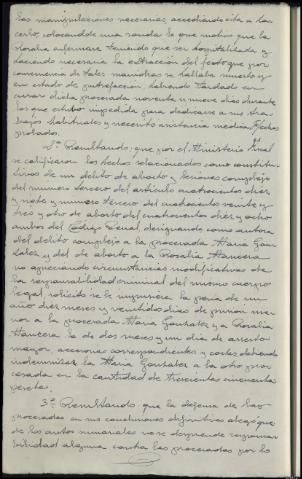 las manipulaciones necesarias, accediendo esta a ha-
cerlo, colocandole una sonda lo que motivo que la
Rosalia enfermara teniendo que ser hospitalizada y
haciendo necesaria la extracción del feto que por
consecuencia de tales maniobras se hallaba muerto y
en estado de putrefacción, habiendo tardado en
curar dicha procesada noventa y nueve dias durante
los que estuvo impedida para dedicarse a sus tra-
bajos habituales y necesito asistencia medica. Hechos
probados.
2º Resultando: que por el Ministerio Fiscal
se calificaron los hechos relacionados como constitu-
tivos de un delito de aborto y lesiones complejo
del numero tercero del articulo cuatrocientos diez
y ocho y numero tercero del cuatrocientos veinte y
tres y otro de aborto del cuatrocientos diez y ocho
ambos del Codigo Penal designando como autora
del delito complejo a la procesada Maria Gon-
zalez y del de aborto a la Rosalia
no apreciando circunstancias modificativas de
la responsabilidad criminal del mismo cuerpo
legal, solicito se le impusiera la pena de un
año diez meses y veintidos dias de prision me-
nor a la procesada Maria Gonzalez y a Rosalia
la de dos meses y un dia de arresto
mayor, accesorias correspondientes y costas debiendo
indemnizar la Maria Gonzalez a la otra pro-
cesada en la cantidad de trescientas cincuenta
pesetas.
3º Resultando que la defensa de las
procesadas en sus conclusiones definitivas alegó que
de los autos sumariales no se desprende responsa-
bilidad alguna contra las procesadas por lo